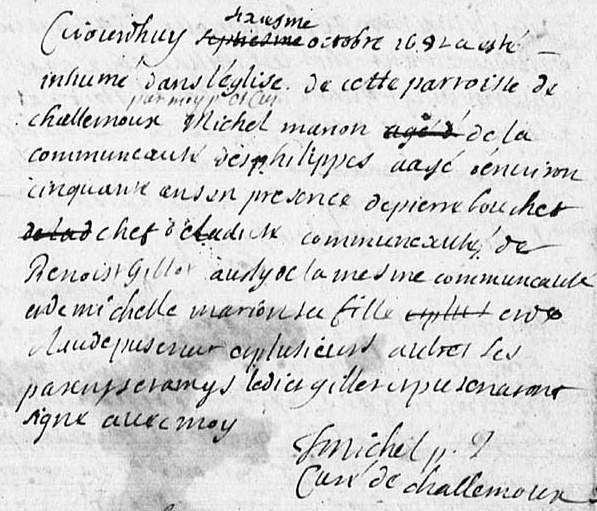 sixiesme
Ce jourdhuy septiesme octobre 1692 a esté
inhumé dans leglise de cette parroisse de
par moy p. et Curé
challemoux Michel marion agé d de la
communeauté des philippes aagé denviron
cinquante ans en presence de pierre bouchet
chef de ladicte communeauté de
Benoist Gillet aussy de la mesme communeauté
et de michelle marion sa fille et de
claude et plusieurs autres ses
parens et amys ledict gillet et ont
signé avec moy
Michel p.
Curé de challemoux